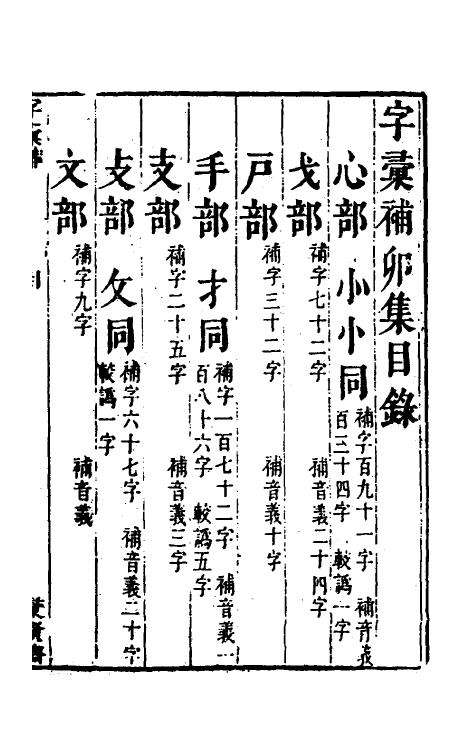 字彙補卯集目錄
心部 㣺小同 補字百九十一字 補音義百三十四字 較譌一字
戈部 補字七十二字 補音義二十四字
戸部 補字三十二字 補音義十字
手部 才同 補字一百七十二字 補音義一百八十六字 較譌五字
支部 補字二十五字 補音義三字
攴部 攵同 補字六十七字 補音義二十字 較譌一字
文部 補字九字 補音義